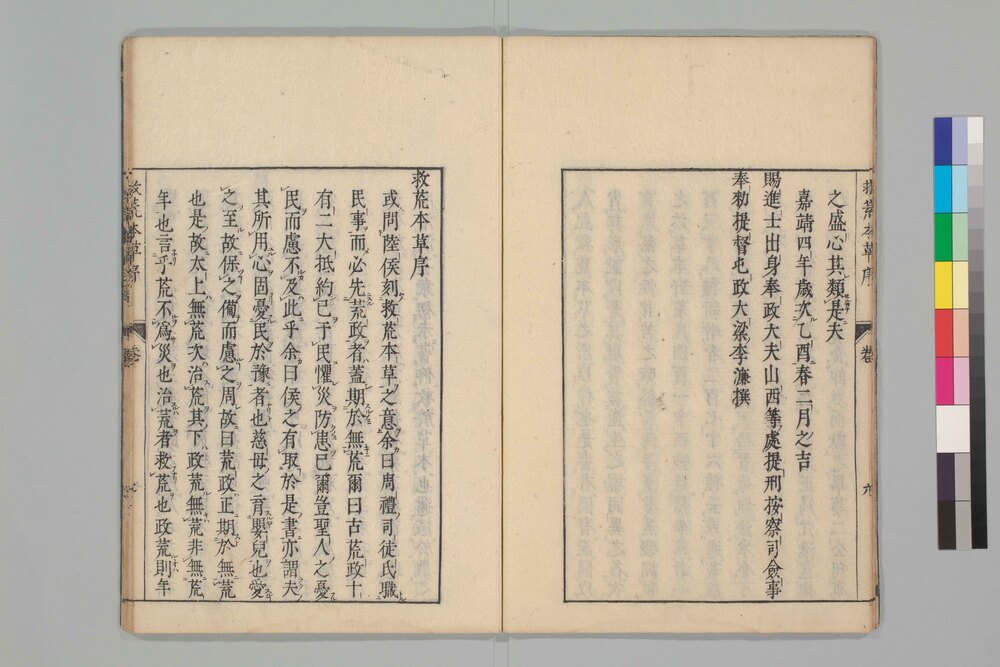 救荒本草序
六
之盛心其類是夫
嘉靖四年歲次乙酉春二月之吉
賜進士出身奉政大夫山西等處提刑按察司僉事
奉勑提督屯政大梁李濂撰
救荒本草序
或問陸侯刻救荒本草之意余曰周禮司徒氏職
民事而必先荒政者蓋期於無荒爾曰古荒政十
有二大抵約己于民懼災防患已爾豈聖人之憂
民而慮不及此乎余曰侯之有取於是書亦謂夫
其所用心固憂民於豫者也慈母之育嬰兒也愛
之至故保之備而慮之周故曰荒政正期於無荒
也是故太上無荒次治荒其下政荒無荒非無荒
年也言乎荒不爲災也治荒者救荒也政荒則年
救荒本草序